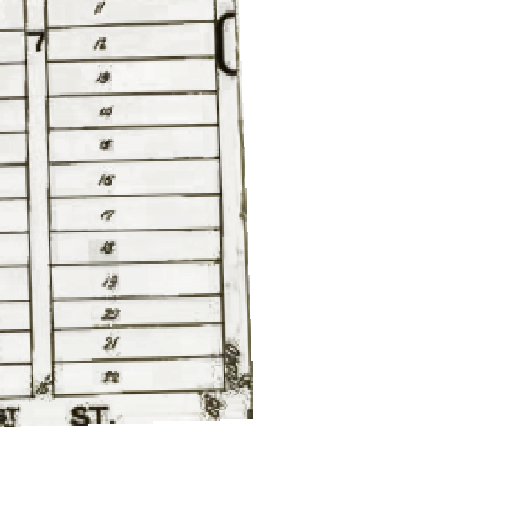 11
7
12
13
14
15
16
17
18
19
20
21
22
ST.